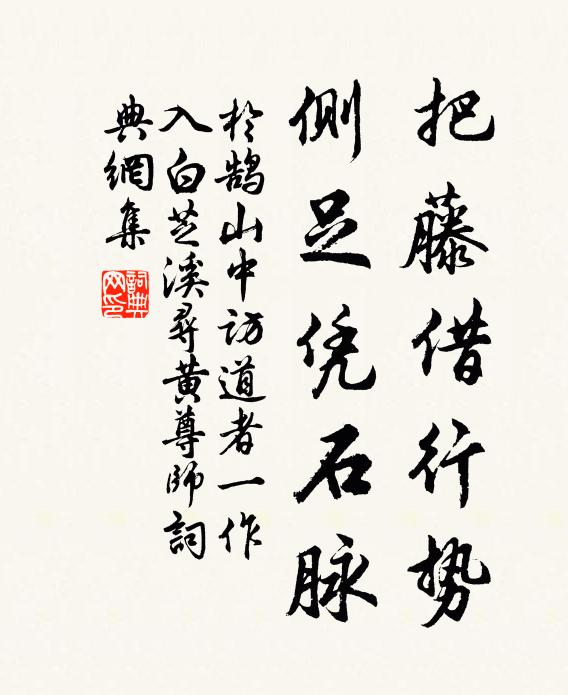 把藤借行势
侧足凭石脉
於鹄山中访道者一作
入白芝溪寻黄尊师词
典網集
詞典網印